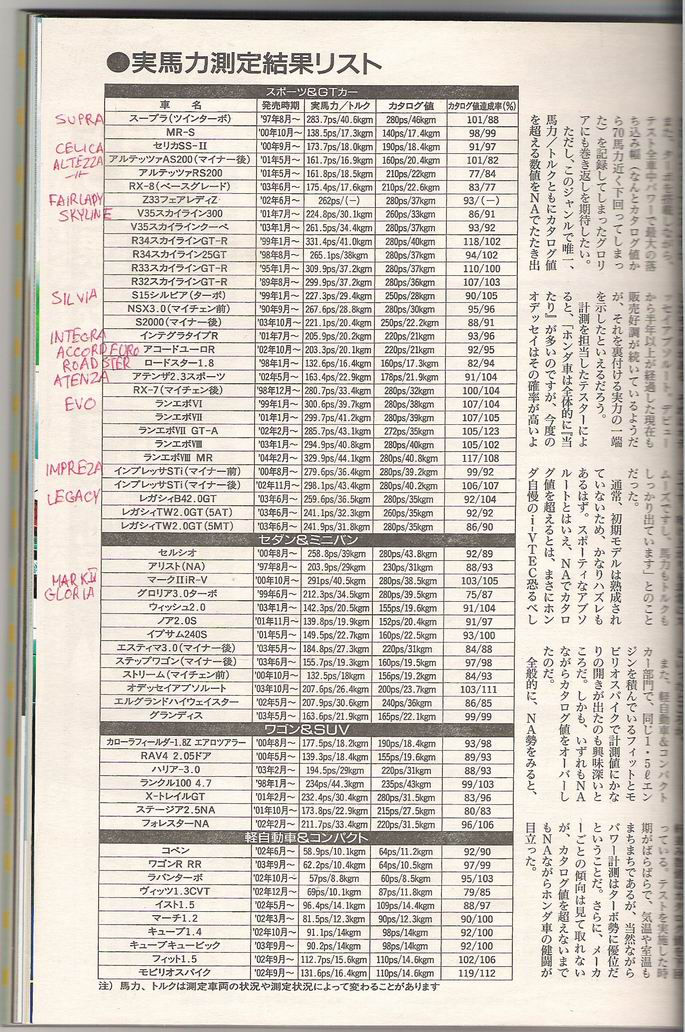 ●実馬力測定結果リスト
スポーツ&GTカー
車 名 発売時期 実馬力/トルク カタログ値 カタログ値達成率(%)
SUPRA スープラ(ツインターボ) '97年8月~ 283.7ps/40.6kgm 280ps/46kgm 101/88
MR-S '00年10月~ 138.5ps/17.3kgm 140ps/17.4kgm 98/99
CELICA セリカSS-II '00年9月~ 173.7ps/18.0kgm 190ps/18.4kgm 91/97
ALTEZZA アルテッツァAS200(マイナー後) '01年5月~ 161.7ps/16.9kgm 160ps/20.4kgm 101/82
アルテッツァRS200 '01年5月~ 161.8ps/18.5kgm 210ps/22kgm 77/84
RX-8(ベースグレード) '03年6月~ 175.4ps/17.6kgm 210ps/22.6kgm 83/77
FAIRLADY Z33フェアレディZ '02年6月~ 262ps/(−) 280ps/(−) 93/(−)
SKYLINE V35スカイライン300 '01年7月~ 224.8ps/30.1kgm 260ps/33kgm 86/91
V35スカイラインクーペ '03年1月~ 261.5ps/34.4kgm 280ps/37kgm 93/92
R34スカイラインGT-R '99年1月~ 331.4ps/41.0kgm 280ps/40kgm 118/102
R34スカイライン25GT '98年5月~ 265.1ps/38kgm 280ps/37kgm 94/102
R33スカイラインGT-R '95年1月~ 309.9ps/37.2kgm 280ps/37kgm 110/100
R32スカイラインGT-R '89年8月~ 299.9ps/37.2kgm 280ps/36kgm 107/103
SILVIA S15シルビア(ターボ) '99年1月~ 227.3ps/29.4kgm 250ps/28kgm 90/105
NSX3.0(マイチェン前) '90年9月~ 267.6ps/28.8kgm 280ps/30kgm 95/96
S2000(マイナー後) '03年10月~ 221.1ps/20.4kgm 250ps/22.2kgm 88/91
INTEGRA インテグラタイプR '01年7月~ 205.9ps/20.2kgm 220ps/21kgm 93/96
ACCORD EURO アコードユーロR '02年10月~ 203.3ps/20.1kgm 220ps/21kgm 92/95
ROADSTER ロードスター1.8 '98年1月~ 132.6ps/16.4kgm 160ps/17.3kgm 82/94
ATENZA アテンザ2.3スポーツ '02年5月~ 163.4ps/22.9kgm 178ps/21.9kgm 91/104
RX-7(マイチェン後) '98年12月~ 280.7ps/33.4kgm 280ps/32kgm 100/104
EVO ランエボVI '99年1月~ 300.6ps/39.7kgm 280ps/38kgm 107/104
ランエボVII '01年1月~ 299.7ps/41.2kgm 280ps/39kgm 107/104
ランエボVII GT-A '02年2月~ 285.7ps/43.1kgm 272ps/35kgm 105/123
ランエボVIII '03年1月~ 294.9ps/40.8kgm 280ps/40kgm 105/102
ランエボVIII MR '04年2月~ 329.9ps/44.1kgm 280ps/40.8kgm 117/108
IMPREZA インプレッサSTi(マイナー前) '00年8月~ 279.6ps/36.4kgm 280ps/39.2kgm 99/92
インプレッサSTi(マイナー後) '02年11月~ 298.1ps/43.4kgm 280ps/40.2kgm 106/107
LEGACY レガシィB42.0GT '03年6月~ 259.6ps/36.5kgm 280ps/35kgm 92/104
レガシィTW2.0GT(5AT) '03年6月~ 241.1ps/32.3kgm 260ps/35kgm 92/92
レガシィTW2.0GT(5MT) '03年6月~ 241.9ps/31.8kgm 280ps/35kgm 86/90
セダン&ミニバン
セルシオ '00年8月~ 258.8ps/39kgm 280ps/43.8kgm 92/89
アリスト(NA) '97年8月~ 203.9ps/29kgm 230ps/31kgm 88/93
MARKII マークIIiR-V '00年10月~ 291ps/40.5kgm 280ps/38.5kgm 103/105
GLORIA グロリア3.0ターボ '99年6月~ 212.3ps/34.5kgm 280ps/39.5kgm 75/87
ウィッシュ2.0 '03年1月~ 142.3ps/20.5kgm 155ps/19.6kgm 91/104
ノア2.0S '01年11月~ 139.8ps/19.9kgm 152ps/20.4kgm 91/97
イプサム240S '01年5月~ 149.5ps/22.7kgm 160ps/22.5kgm 93/100
エスティマ3.0(マイナー後) '03年5月~ 184.8ps/27.3kgm 220ps/31kgm 84/88
ステップワゴン(マイナー後) '03年6月~ 155.7ps/19.3kgm 160ps/19.5kgm 97/98
ストリーム(マイチェン前) '00年10月~ 132.5ps/18kgm 156ps/19.2kgm 84/93
オデッセイアブソルート '03年10月~ 207.6ps/26.4kgm 200ps/23.7kgm 103/111
エルグランドハイウェイスター '02年5月~ 207.9ps/30.6kgm 240ps/36kgm 86/85
グランディス '03年5月~ 163.6ps/21.9kgm 165ps/22.1kgm 99/99
ワゴン&SUV
カローラフィールダー1.8Z エアロツアラー '00年8月~ 177.5ps/18.2kgm 190ps/18.4kgm 93/98
RAV4 2.05ドア '00年5月~ 139.3ps/18.4kgm 155ps/19.6kgm 89/93
ハリアー3.0 '03年2月~ 194.5ps/29kgm 220ps/31kgm 88/93
ランクル100 4.7 '98年1月~ 234ps/44.3kgm 235ps/43kgm 99/103
X-トレイルGT '01年2月~ 232.4ps/30.4kgm 280ps/31.5kgm 83/96
ステージア2.5NA '01年10月~ 173.8ps/22.9kgm 215ps/27.5kgm 80/83
フォレスターNA '02年2月~ 211.7ps/33.4kgm 220ps/31.5kgm 96/106
軽自動車&コンパクト
コペン '02年6月~ 58.9ps/10.1kgm 64ps/11.2kgm 92/90
ワゴンR RR '03年9月~ 62.2ps/10.4kgm 64ps/10.5kgm 97/99
ラパンターボ '02年10月~ 57ps/8.8kgm 60ps/8.5kgm 95/103
ヴィッツ1.3CVT '02年12月~ 69ps/10.1kgm 87ps/11.8kgm 79/85
イスト1.5 '02年5月~ 96.4ps/14.1kgm 109ps/14.4kgm 88/97
マーチ1.2 '02年3月~ 81.5ps/12.3kgm 90ps/12.3kgm 90/100
キューブ1.4 '02年10月~ 91.1ps/14kgm 98ps/14kgm 92/100
キューブキュービック '03年9月~ 90.2ps/14kgm 98ps/14kgm 92/100
フィット1.5 '02年9月~ 112.7ps/15.6kgm 110ps/14.6kgm 102/106
モビリオスパイク '02年9月~ 131.6ps/16.4kgm 110ps/14.6kgm 119/112
注)馬力、トルクは測定車両の状況や測定状況によって変わることがあります
ち込み幅(なんとカタログ値か
ら70馬力近く下回ってしまっ
た)を記録してしまったグロリ
アにも巻き返しを期待したい。
ただし、このジャンルで唯一、
馬力/トルクともにカタログ値
を超える数値をNAでたたき出
から半年以上が経過した現在も
販売好調が続いているようだ
が、それを裏付ける実力の一端
を示したといえるだろう。
計測を担当したテスターによ
ると、「ホンダ車は全体的に『当
たり』が多いのですが、今度の
オデッセイはその確率が高いよ
ムーズですし、馬力もトルクも
しっかり出ています」とのこと
だった。
通常、初期モデルは熟成され
ていないため、かなりハズレも
あるはず。スポーティなアブソ
ルートとはいえ、NAでカタロ
グ値を超えるとは、まさにホン
ダ自慢のi-VTEC恐るべし
また、軽自動車&コンパクト
カー部門で、同じ1・5ℓエン
ジンを積んでいるフィットとモ
ビリオスパイクで計測値にかな
りの開きが出たのも興味深いと
ころだ。しかも、いずれもNA
ながらカタログ値をオーバーし
たのだ。
全般的に、NA勢をみると、
っている。テストを実施した時
期がばらばらで、気温や室温も
まちまちであるが、当然ながら
パワー計測はターボ勢に優位だ
ということだ。さらに、メーカ
ーごとの傾向は見て取れない
が、カタログ値を超えないまで
もNAながらホンダ車の健闘が
目立った。